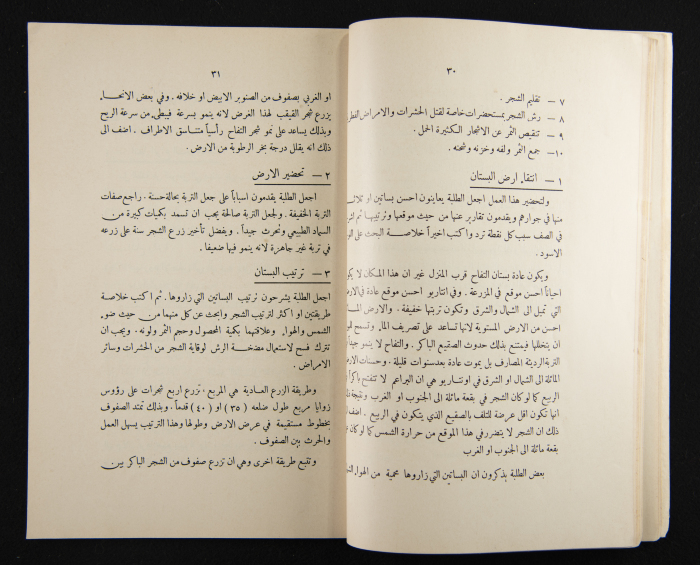 ٣٠
٧ — تقليم الشجر .
٨ — رش الشجر بمستحضرات خاصة لقتل الحشرات والامراض
٩ — تنقيص الثمر عن الاشجار الكثيرة الحمل .
١٠— جمع الثمر ولفه وخزنه وشحنه .
١ — انتقاء ارض البستان
ولتحضير هذا العمل اجعل الطلبة يعاينون احسن بساتين او ثلاثـ
منها في جوارهم ويقدمون تقارير عنها من حيث موقعها وترتيبها
في الصف سبب كل نقطة ترد واكتب اخيراً خلاصة البحث على
الاسود .
ويكون عادة بستان التفاح قرب المنزل غير ان هذا المكان لا
احياناً احسن موقع في المزرعة . وفي انتاريو احسن موقع عادة في
التي تميل الى الشمال والشرق وتكون تربتها خفيفة . والارض
احسن من الارض المستوية لانها تساعد على تصريف الماء
ان يتخللها فيمتنع بذلك حدوث الصقيع الباكر . والتفاح لا
التربة الرديئة المصارف بل يموت عادة بعد سنوات قليلة . وحسنات
المائلة الى الشمال او الشرق في اونتاريو هي ان البراعم لا تتفتح باكراً
الربيع كما لو كان الشجر في بقعة مائلة الى الجنوب او الغرب
انها تكون اقل عرضة للتلف بالصقيع الذي يتكون في الربيع .
ذلك ان الشجر لا يتضرر في هذا الموقع من حرارة الشمس كما لو كان
بقعة مائلة الى الجنوب او الغرب
بعض الطلبة يذكرون ان البساتين التي زاروها محمية من الهواء
٣١
او الغربي بصفوف من الصنوبر الابيض او خلافه . وفي بعض الانحاء
يزرع شجر القيقب لهذا الغرض لانه ينمو بسرعة فيبطىء من سرعة الريح
وبذلك يساعد على نمو شجر التفاح رأسياً متناسق الاطراف . اضف الى
ذلك انه يقلل درجة بخر الرطوبة من الارض .
٢ — تحضير الارض
اجعل الطلبة يقدمون اسباباً على جعل التربة بحالة حسنة . راجع صفات
التربة الخفيفة . ولجعل التربة صالحة يجب ان تسمد بكميات كبيرة من
السماد الطبيعي وتحرث جيداً . ويفضل تأخير زرع الشجر سنة على زرعه
في تربة غير جاهزة لانه ينمو فيها ضعيفاً .
٣ — ترتيب البستان
اجعل الطلبة يشرحون ترتيب البساتين التي زاروها . ثم اكتب خلاصة
طريقتين او اكثر لترتيب الشجر وابحث عن كل منهما من حيث ضوء
الشمس والهواء وعلاقتهما بكمية المحصول وحجم الثمر ولونه . ويجب ان
تترك فسح لاستعمال مضخة الرش لوقاية الشجر من الحشرات وسائر
الامراض .
وطريقة الزرع العادية هي المربع . تزرع اربع شجرات على رؤوس
زوايا مربع طول ضلعه (٣٥) او (٤٠) قدماً . وبذلك تمتد الصفوف
بخطوط مستقيمة في عرض الارض وطولها وهذا الترتيب يسهل العمل
والحرث بين الصفوف .
وتتبع طريقة اخرى وهي ان تزرع صفوف من الشجر الباكر بين